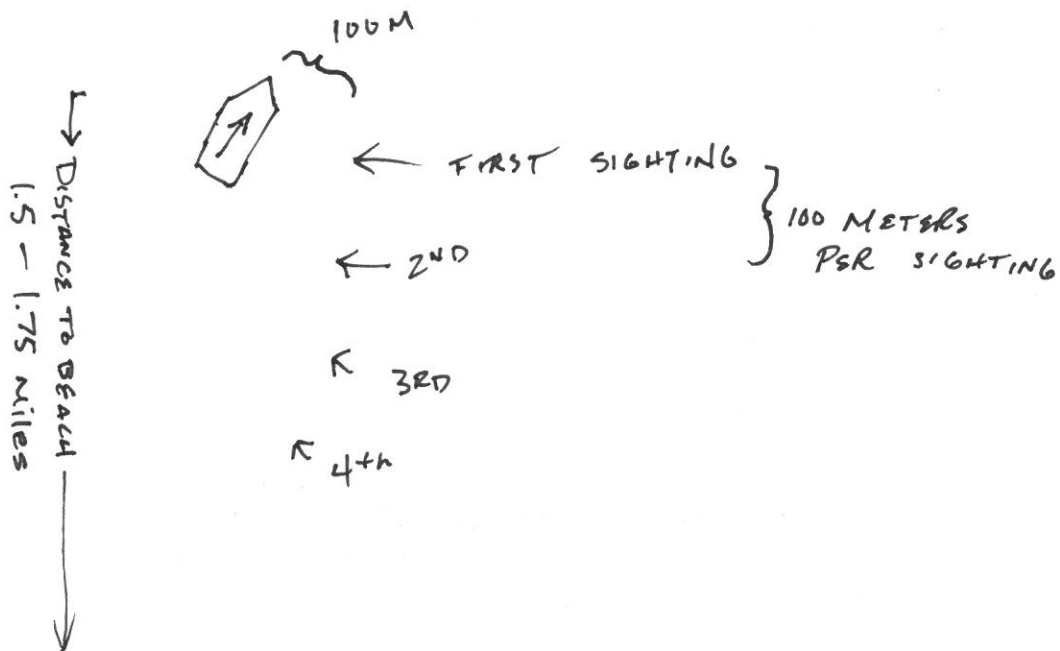 100M
FIRST SIGHTING
100 METERS
PER SIGHTING
2ND
3RD
4th
DISTANCE TO BEACH
1.5 - 1.75 Miles